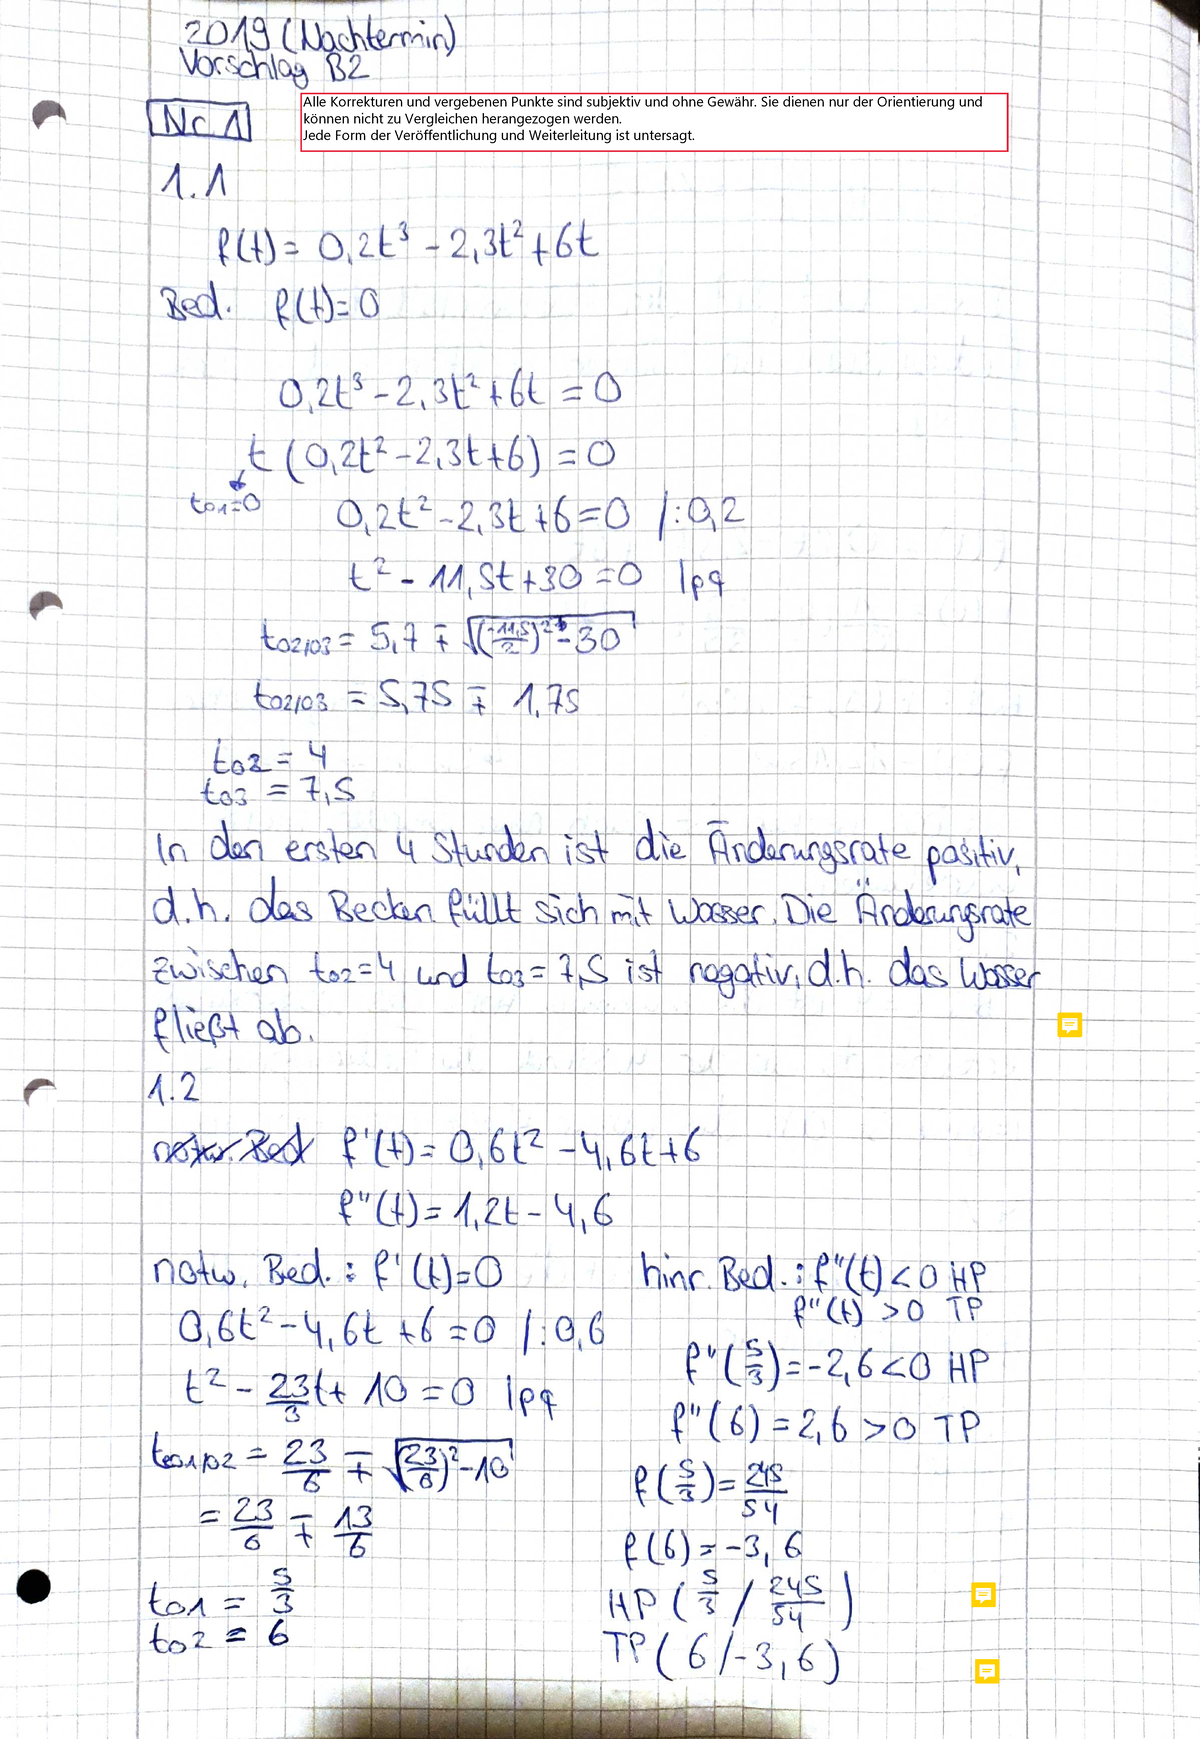 2019 (Nachtermin)
Vorschlag B2
Nr. 1
Alle Korrekturen und vergebenen Punkte sind subjektiv und ohne Gewähr. Sie dienen nur der Orientierung und
können nicht zu Vergleichen herangezogen werden.
Jede Form der Veröffentlichung und Weiterleitung ist untersagt.
1.1
f(t) = 0,2t³ - 2,3t² + 6t
Bed. f(t) = 0
0,2t³ - 2,3t² + 6t = 0
t (0,2t² - 2,3t + 6) = 0
t₀₁ = 0
0,2t² - 2,3t + 6 = 0 /:0,2
t² - 11,5t + 30 = 0 |pq
t₀₂/₀₃ = 5,7 ∓ √((-11,5/2)² - 30)
t₀₂/₀₃ = 5,75 ∓ 1,75
t₀₂ = 4
t₀₃ = 7,5
In den ersten 4 Stunden ist die Änderungsrate positiv,
d.h. das Becken füllt sich mit Wasser. Die Änderungsrate
zwischen t₀₂=4 und t₀₃=7,5 ist negativ, d.h. das Wasser
fließt ab.
1.2
notw. Bed f'(t) = 0,6t² - 4,6t + 6
f''(t) = 1,2t - 4,6
notw. Bed.: f'(t) = 0
0,6t² - 4,6t + 6 = 0 /:0,6
t² - 23/3 t + 10 = 0 |pq
t₀₁/₀₂ = 23/6 ∓ √((23/6)² - 10)
= 23/6 ∓ 13/6
t₀₁ = 5/3
t₀₂ = 6
hinr. Bed.: f''(t) < 0 HP
f''(t) > 0 TP
f''(5/3) = -2,6 < 0 HP
f''(6) = 2,6 > 0 TP
f(5/3) = 245/54
f(6) = -3,6
HP (5/3 / 245/54)
TP (6/-3,6)